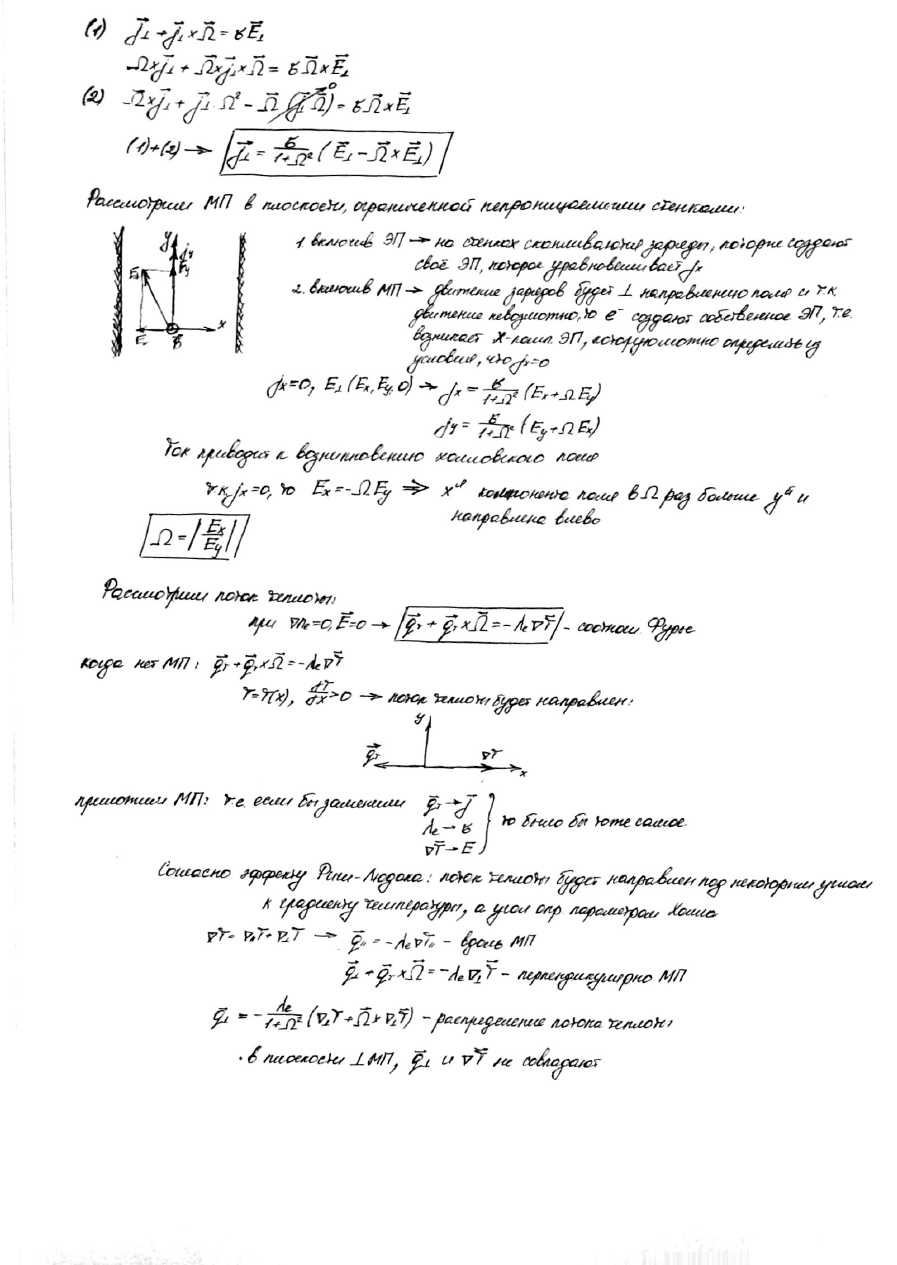 (1) j⃗⊥ + j⃗⊥ × Ω⃗ = σE⃗⊥
Ω⃗×j⃗⊥ + Ω⃗×j⃗⊥×Ω⃗ = σΩ⃗×E⃗⊥
(2) Ω⃗×j⃗⊥ + j⃗⊥·Ω² − Ω⃗(j⃗⊥Ω⃗)⁰ = σΩ⃗×E⃗⊥
(1)+(2) → j⃗⊥ = σ/(1+Ω²) (E⃗⊥ − Ω⃗×E⃗⊥)
Рассмотрим МП в плоскости, ограниченной непроницаемыми стенками:
y jy Ey x B⃗
1. включив ЭП → на стенках скапливаются заряды, которые создают
своё ЭП, которое уравновешивает jx
2. включив МП → движение зарядов будет ⊥ направлению поля и т.к
движение невозможно, то e⁻ создают собственное ЭП, т.е.
возникает X-комп. ЭП, которую можно определить из
условия, что jx=0
jx=0, E⊥(Ex,Ey,0) → jx = σ/(1+Ω²) (Ex+ΩEy)
jy = σ/(1+Ω²) (Ey+ΩEx)
Ток приводит к возникновению холловского поля
т.к. jx=0, то Ex=−ΩEy ⇒ xᵃ компонента поля в Ω раз больше yᵃ и
направлена влево
Ω = |Ex/Ey|
Рассмотрим поток теплоты:
при ∇ne=0, E⃗=0 → q⃗т + q⃗т×Ω⃗ = −λe∇T⃗ - соотнош. Фурье
когда нет МП: q⃗т + q⃗т×Ω⃗ = −λe∇T⃗
T=T(x), dT/dx>0 → поток теплоты будет направлен:
y
q⃗т ∇T
x
приложим МП: т.е. если бы заменили q⃗т → j⃗
λe → σ } то было бы тоже самое
∇T⃗ → E
Согласно эффекту Риги-Людока: поток теплоты будет направлен под некоторым углом
к градиенту температуры, а угол опр. параметром Холла
∇T = ∇∥T⃗ + ∇⊥T⃗ → q⃗∥ = −λe∇T∥ - вдоль МП
q⃗⊥ + q⃗т×Ω⃗ = −λe∇⊥T⃗ - перпендикулярно МП
q⃗⊥ = −λe/(1+Ω²) (∇⊥T + Ω⃗×∇⊥T⃗) - распределение потока теплоты
· в плоскости ⊥ МП, q⃗⊥ и ∇T⃗ не совпадают